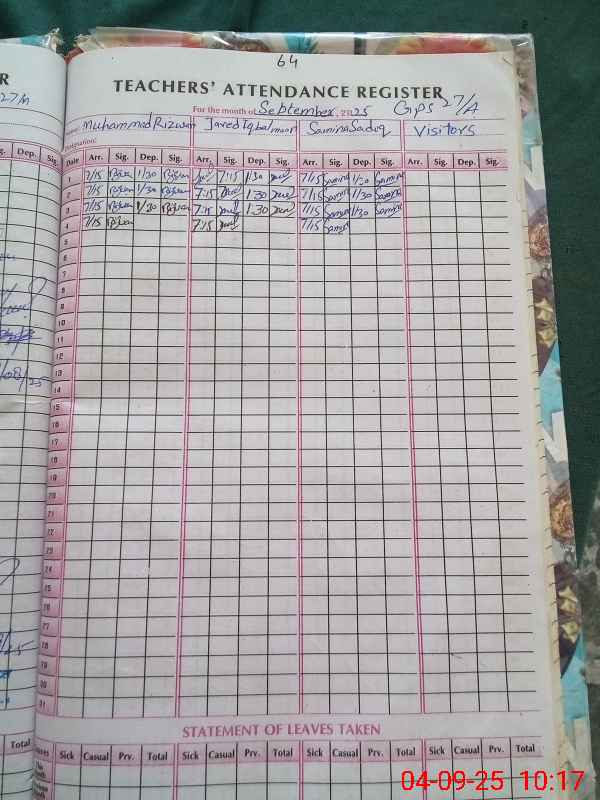 64
R TEACHERS' ATTENDANCE REGISTER
27/M For the month of September, 2025 GPS 27/A
Name: Muhammad Rizwan Javed Iqbal Samina Sadiq Visitors
Designation:
Sig. Dep. Sig. Date Arr. Sig. Dep. Sig. Arr. Sig. Dep. Sig. Arr. Sig. Dep. Sig. Arr. Sig. Dep. Sig.
1 7/15 Rizwan 1/30 Rizwan 7:15 1/30 7/15 Samina 1/30 Samina
2 7/15 Rizwan 1/30 Rizwan 7:15 1:30 7/15 Samina 1/30 Samina
3 7/15 Rizwan 1/30 Rizwan 7:15 1:30 7/15 Samina 1/30 Samina
4 7/15 Rizwan 7:15 7/15 Samina
5
6
7
8
9
10
11
12
13
14
15
16
17
18
19
20
21
22
23
24
25
26
27
28
29
30
31
STATEMENT OF LEAVES TAKEN
Total Leaves Sick Casual Prv. Total Sick Casual Prv. Total Sick Casual Prv. Total Sick Casual Prv. Total
04-09-25 10:17